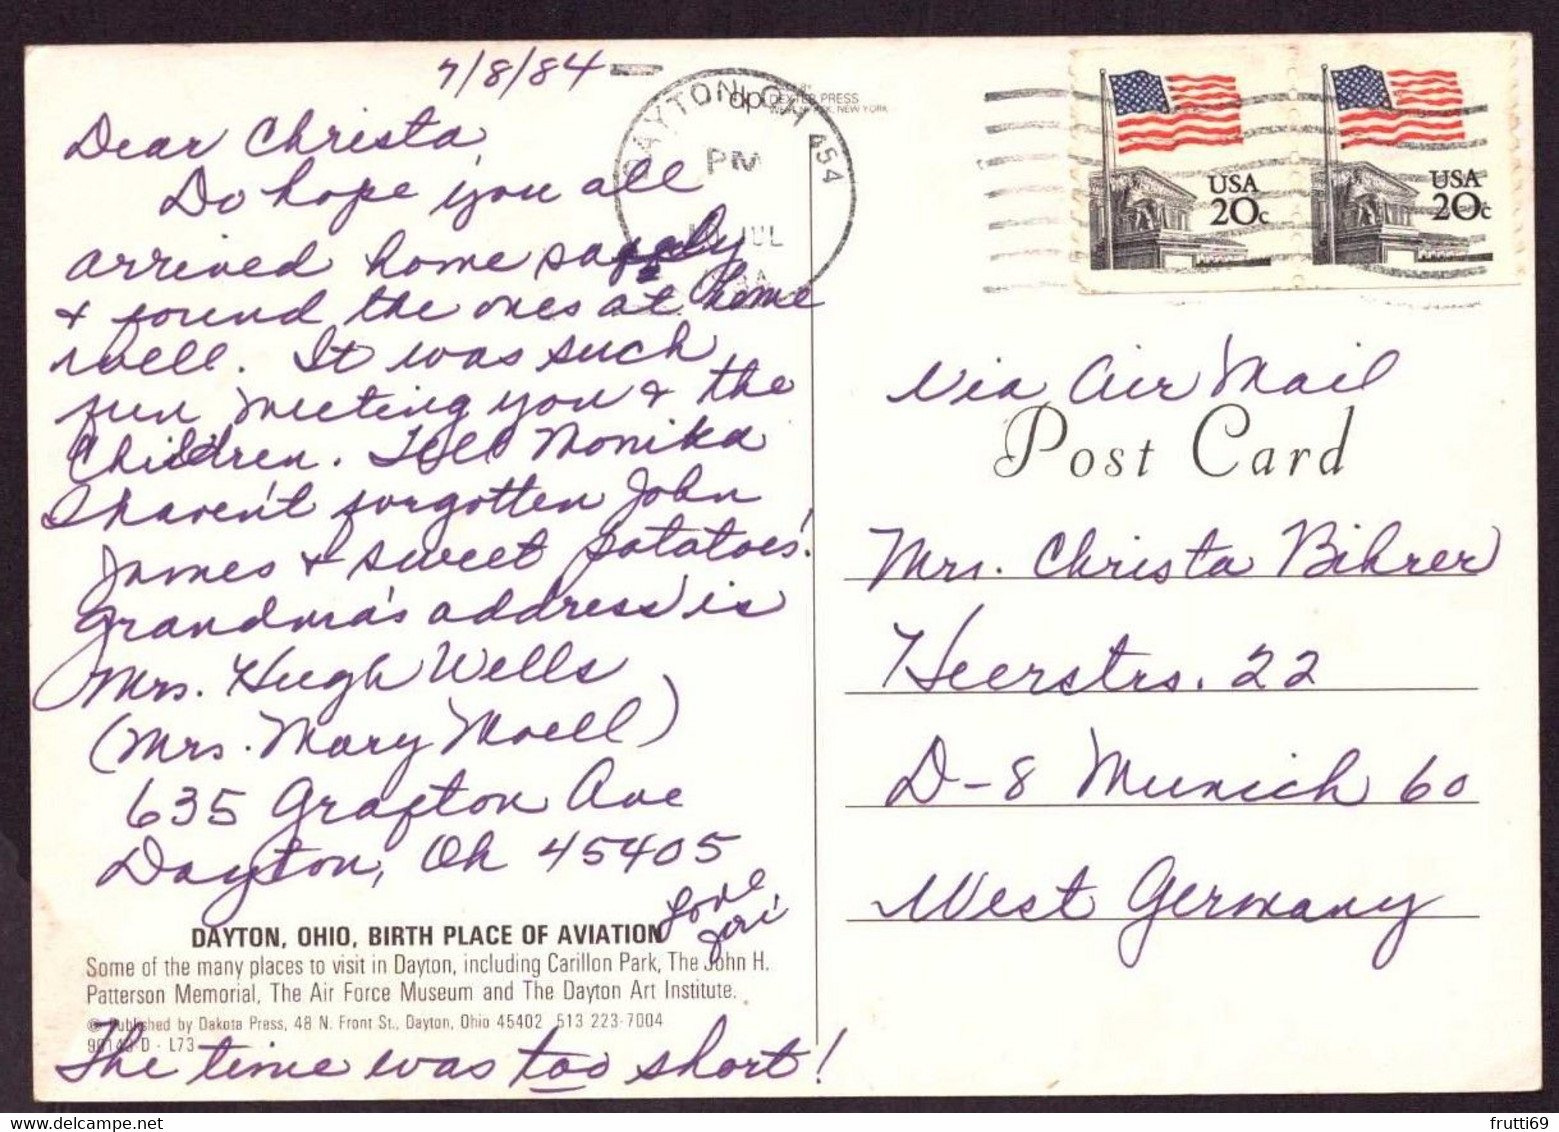 7/8/84
Dear Christa,
Do hope you all
arrived home safely
& found the ones at home
well. It was such
fun meeting you & the
children. Tell Monika
I haven't forgotten John
James & sweet potatoes!
Grandma's address is
Mrs. Hugh Wells
(Mrs. Mary Noell)
635 Grafton Ave
Dayton, Oh 45405
Love
Jeri
DAYTON, OHIO, BIRTH PLACE OF AVIATION
Some of the many places to visit in Dayton, including Carillon Park, The John H.
Patterson Memorial, The Air Force Museum and The Dayton Art Institute.
© Published by Dakota Press, 48 N. Front St., Dayton, Ohio 45402 513 223-7004
D - L73
The time was too short!
DAYTON, OH 454
PM
JUL
dp
DEXTER PRESS
WEST NYACK, NEW YORK
USA
20c
USA
20c
Via Air Mail
Post Card
Mrs. Christa Bihrer
Heerstrs. 22
D-8 Munich 60
West Germany
frutti69